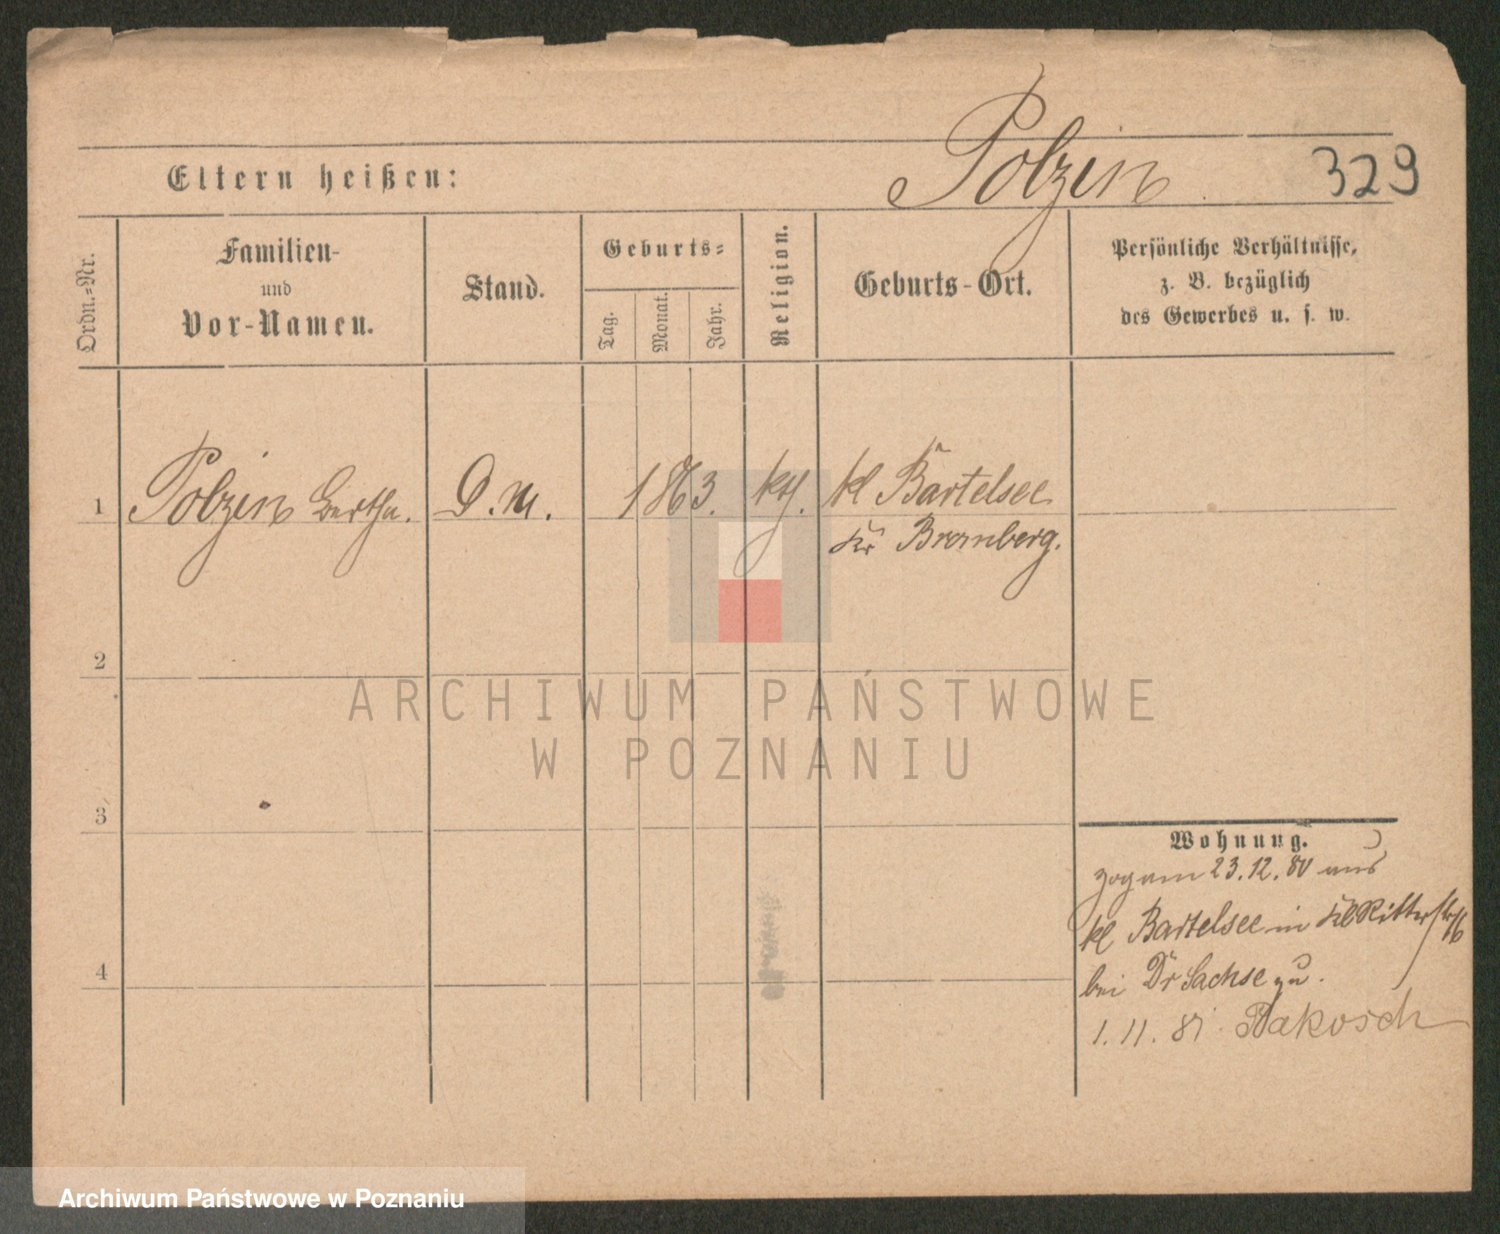 Polzin
329
Eltern heißen:
Ordn.-Nr.
Familien-
und
Vor-Namen.
Stand.
Geburts-
Tag.
Monat.
Jahr.
Religion.
Geburts-Ort.
Persönliche Verhältnisse,
z. B. bezüglich
des Gewerbes u. s. w.
1 Polzin Bertha. D.M. 1863. kth. kl Bartelsee
Kr Bromberg.
2
3
4
Wohnung.
zog am 23.12.80 aus
kl Bartelsee in Kl Ritterstr
bei Dr Sachse zu.
1.11.81 Pakosch
ARCHIWUM PAŃSTWOWE
W POZNANIU
Archiwum Państwowe w Poznaniu